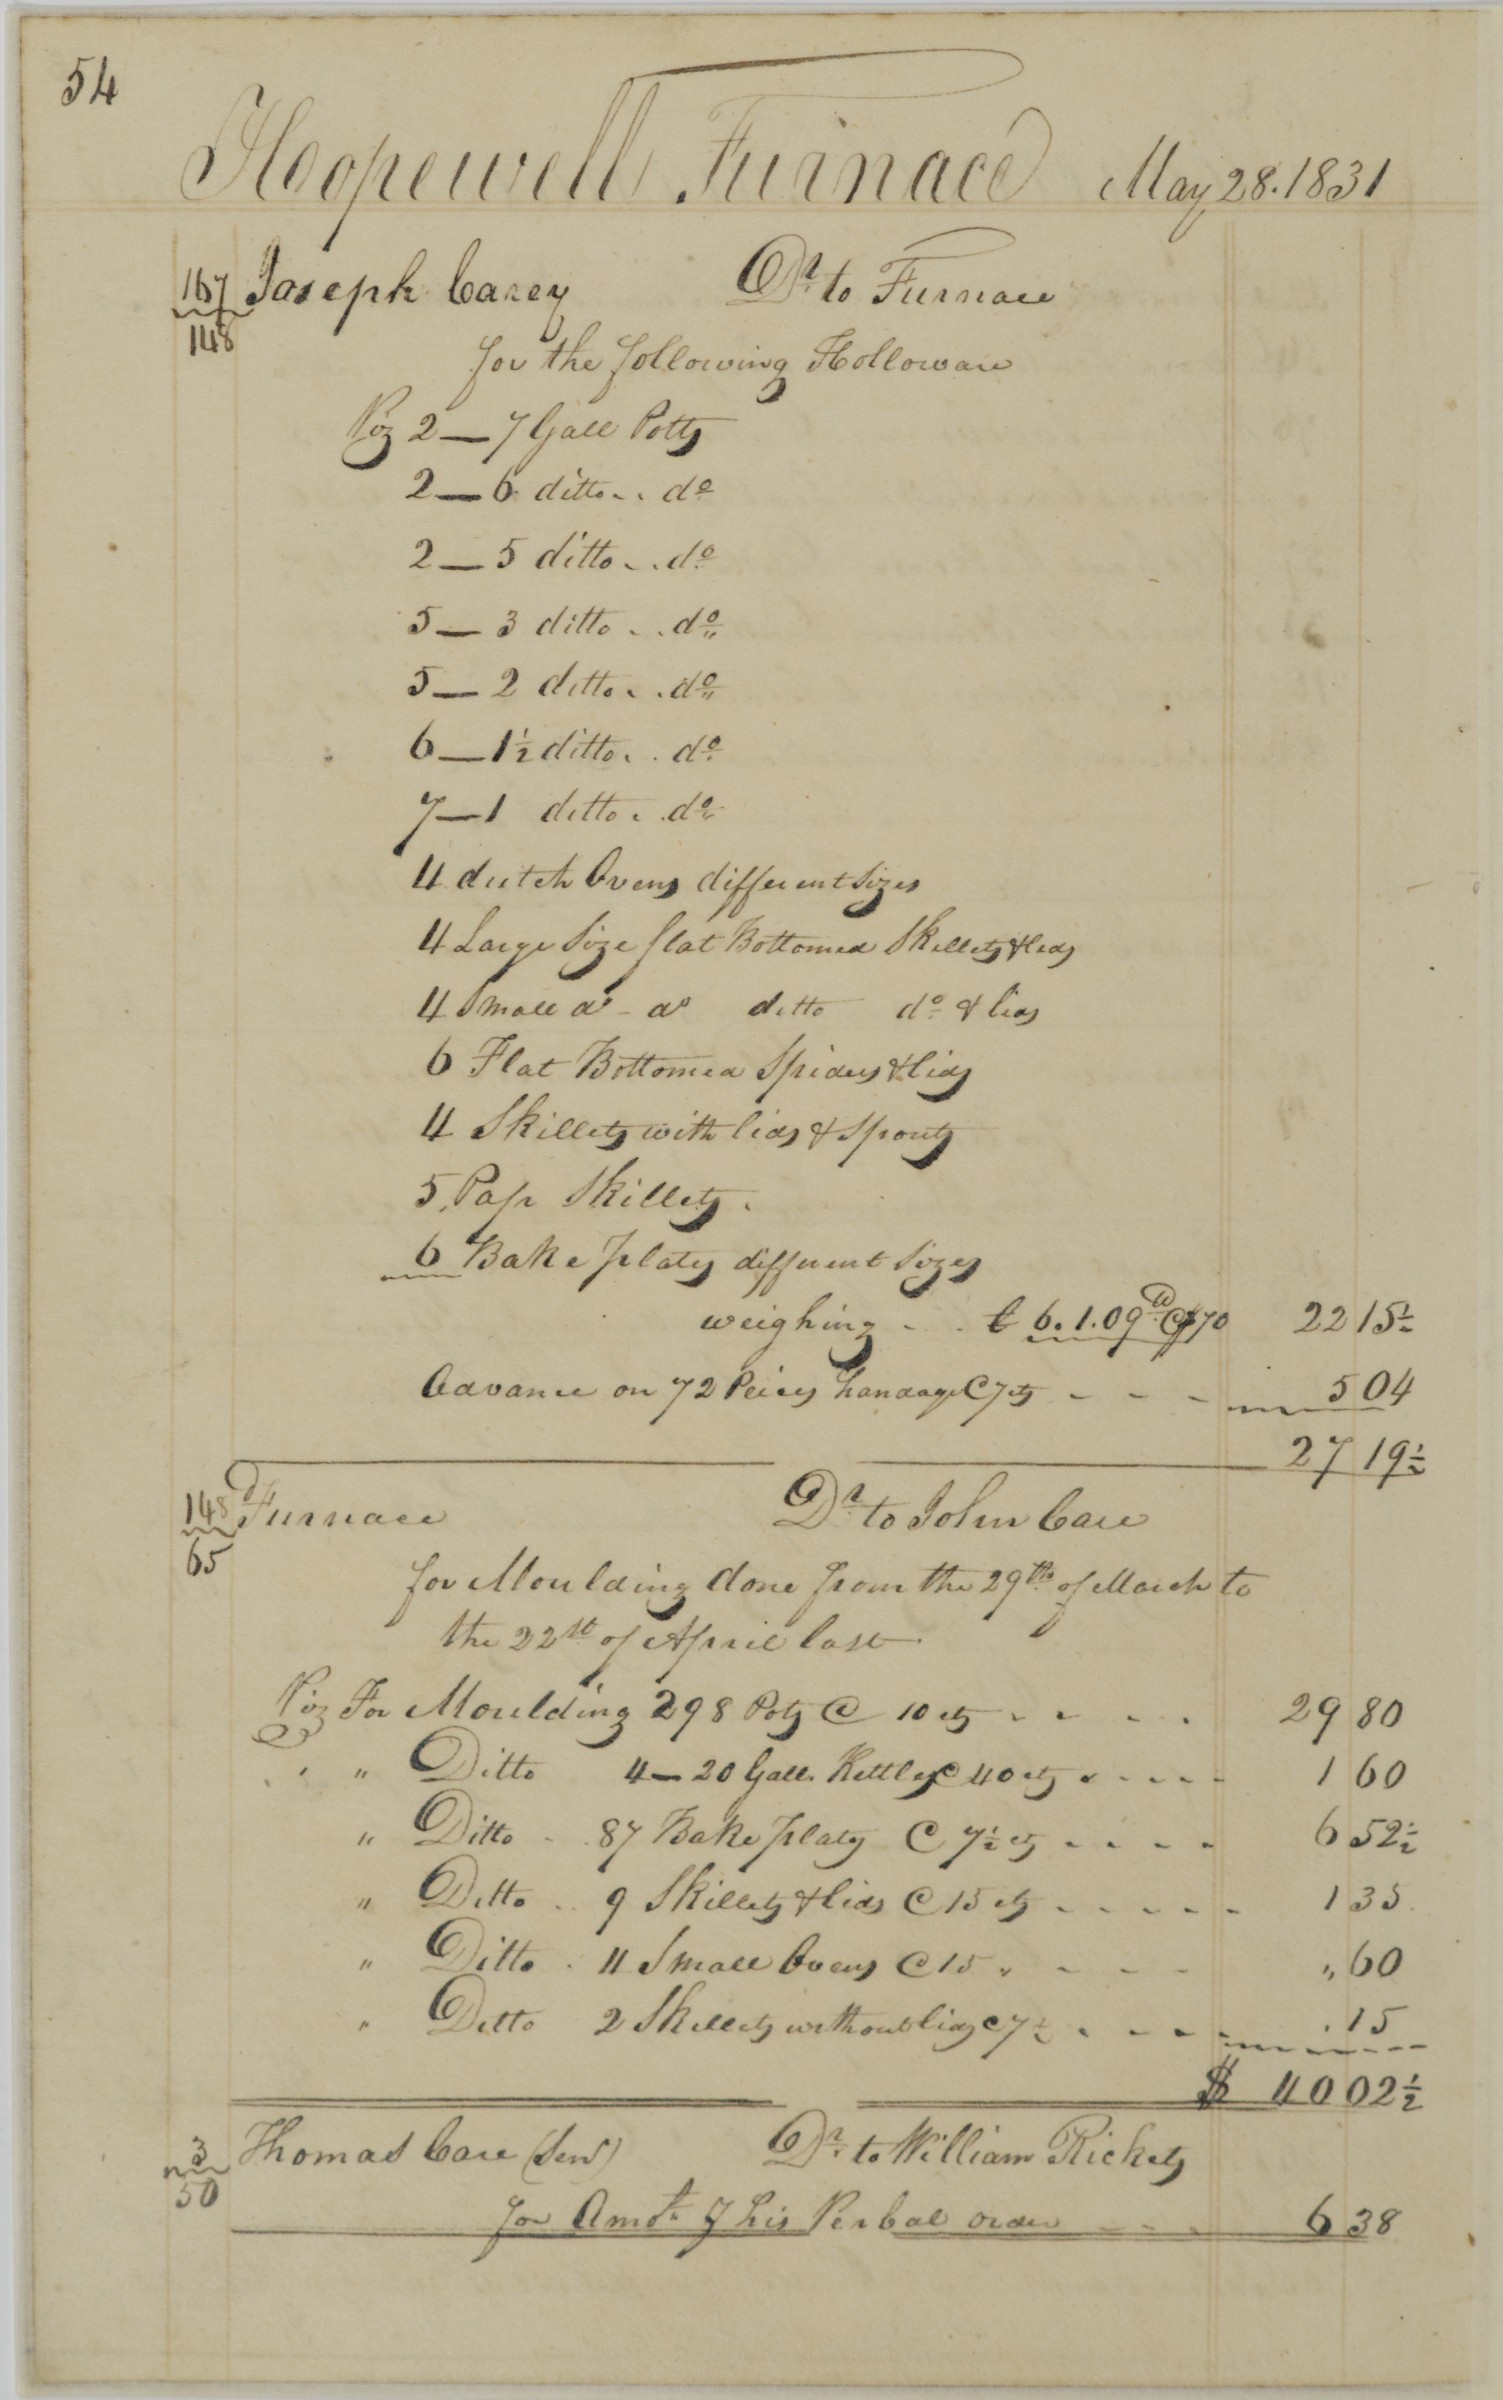 54
Hopewell Furnace May 28. 1831
167 Joseph Carey Dr. to Furnace
148
for the following Holloware
Viz 2 — 7 Gall Potts
2 — 6 ditto .. do
2 — 5 ditto .. do
5 — 3 ditto .. do
5 — 2 ditto .. do
6 — 1½ ditto .. do
7 — 1 ditto .. do
4 dutch Ovens different Sizes
4 Large Size flat Bottomed Skillets & lids
4 Small do - do ditto do & lids
6 Flat Bottomed Spiders & lids
4 Skillets with lids & Spouts
5 Pap Skillets.
6 Bake plates different Sizes
weighing - - 6. 1. 09 @ $70 22 15½
Advance on 72 Peices @ 7 cts - - - 5 04
27 19½
148 Furnace Dr. to John Care
65
for Moulding done from the 29th of March to
the 22st of April last
Viz For Moulding 298 Pots @ 10 cts - - - - 29 80
" Ditto 4 — 20 Gall. Kettles @ 40 cts - - - - 1 60
" Ditto - . 87 Bake plates @ 7½ cts - - - - 6 52½
" Ditto .. 9 Skillets & lids @ 15 cts - - - - - 1 35
" Ditto . 4 Small Ovens @ 15 " - - - " 60
" Ditto 2 Skillets without lids @ 7½ - - - - . 15
$ 40 02½
3 Thomas Care (Senr) Dr. to William Rickets
50
for Amot. of his Verbal order - - - 6 38